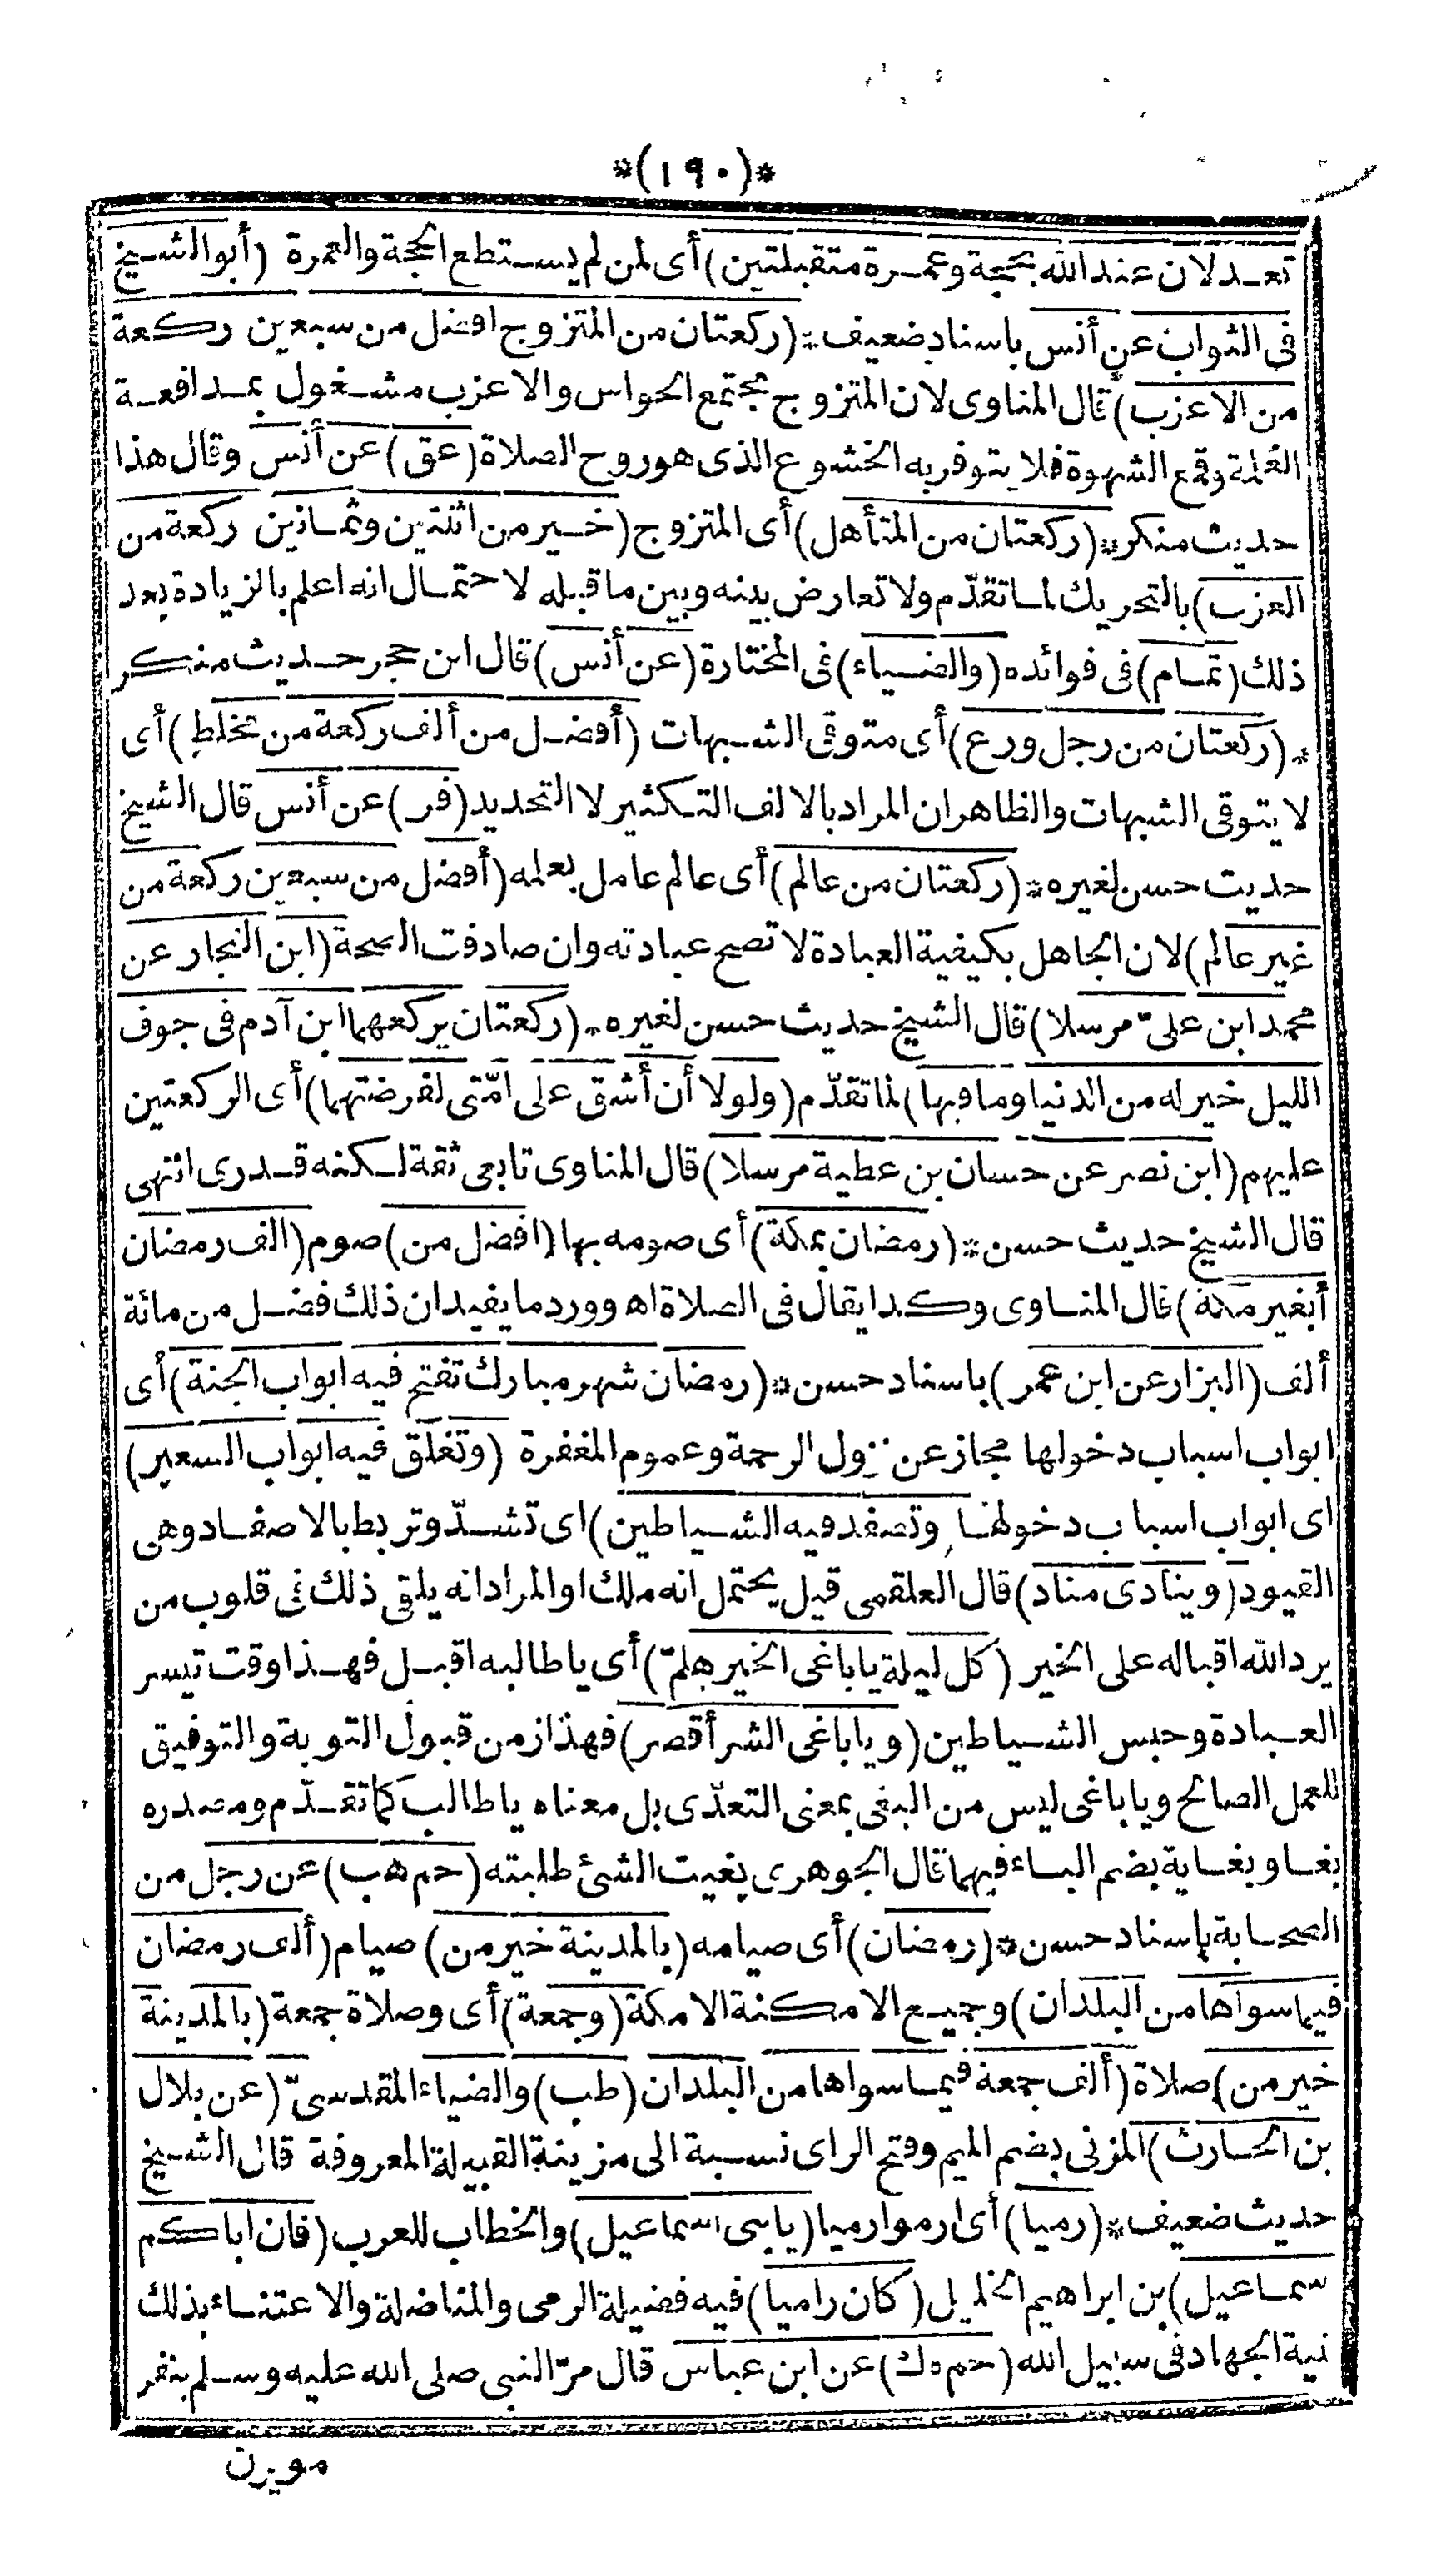 *(١٩٠)*
تعدلان عند الله بحجة وعمرة متقبلتين) أى لمن لم يستطع الحجة والعمرة (أبو الشيخ
فى الثواب عن أنس باسناد ضعيف * (ركعتان من المتزوج افضل من سبعين ركعة
من الاعزب) قال المناوى لان المتزوج مجتمع الحواس والاعزب مشغول بمدافعة
الغلمة وقمع الشهوة فلا يتوفر به الخشوع الذى هو روح الصلاة (عق) عن أنس وقال هذا
حديث منكر * (ركعتان من المتأهل) أى المتزوج (خير من اثنتين وثمانين ركعة من
العزب) بالتحريك لما تقدّم ولا تعارض بينه وبين ما قبله لاحتمال انه اعلم بالزيادة بعد
ذلك (تمام) فى فوائده (والضياء) فى المختارة (عن أنس) قال ابن حجر حديث منكر
* (ركعتان من رجل ورع) أى متوقى الشبهات (أفضل من ألف ركعة من مخلط) أى
لا يتوقى الشبهات والظاهر ان المراد بالالف التكثير لا التحديد (فر) عن أنس قال الشيخ
حديث حسن لغيره * (ركعتان من عالم) أى عالم عامل بعلمه (أفضل من سبعين ركعة من
غير عالم) لان الجاهل بكيفية العبادة لا تصح عبادته وان صادفت الصحة (ابن النجار عن
محمد ابن علىّ مرسلا) قال الشيخ حديث حسن لغيره * (ركعتان يركعهما ابن آدم فى جوف
الليل خير له من الدنيا وما فيها) لما تقدّم (ولولا أن أشق على امّتى لفرضتهما) أى الركعتين
عليهم (ابن نصر عن حسان بن عطية مرسلا) قال المناوى تابعى ثقة لكنه قدرى انتهى
قال الشيخ حديث حسن * (رمضان بمكة) أى صومه بها (افضل من) صوم (الف رمضان
بغير مكة) قال المناوى وكذا يقال فى الصلاة اه وورد ما يفيد ان ذلك فضل من مائة
ألف (البزار عن ابن عمر) باسناد حسن * (رمضان شهر مبارك تفتح فيه ابواب الجنة) أى
ابواب اسباب دخولها مجاز عن نزول الرحمة وعموم المغفرة (وتغلق فيه ابواب السعير)
اى ابواب اسباب دخولها (وتصفد فيه الشياطين) اى تشدّ وتربط بالاصفاد وهى
القيود (وينادى مناد) قال العلقمى قيل يحتمل انه ملك او المراد انه يلقى ذلك فى قلوب من
يرد الله اقباله على الخير (كل ليلة يا باغى الخير هلمّ) أى يا طالبه اقبل فهذا وقت تيسر
العبادة وحبس الشياطين (ويا باغى الشر أقصر) فهذا زمن قبول التوبة والتوفيق
للعمل الصالح ويا باغى ليس من البغى بمعنى التعدّى بل معناه يا طالب كما تقدّم ومصدره
بغا وبغاية بضم الباء فيهما قال الجوهرى بغيت الشئ طلبته (حم هب) عن رجل من
الصحابة باسناد حسن * (رمضان) أى صيامه (بالمدينة خير من) صيام (ألف رمضان
فيما سواها من البلدان) وجميع الامكنة الامكة (وجمعة) أى وصلاة جمعة (بالمدينة
خير من) صلاة (ألف جمعة فيما سواها من البلدان (طب) والضياء المقدسىّ (عن بلال
بن الحارث) المزنى بضم الميم وفتح الراى نسبة الى مزينة القبيلة المعروفة قال الشيخ
حديث ضعيف * (رميا) أى ارموا رميا (يا بنى اسماعيل) والخطاب للعرب (فان اباكم
سماعيل) بن ابراهيم الخليل (كان راميا) فيه فضيلة الرمى والمناضلة والاعتناء بذلك
نية الجهاد فى سبيل الله (حم ه ك) عن ابن عباس قال مرّ النبى صلى الله عليه وسلم بنفر